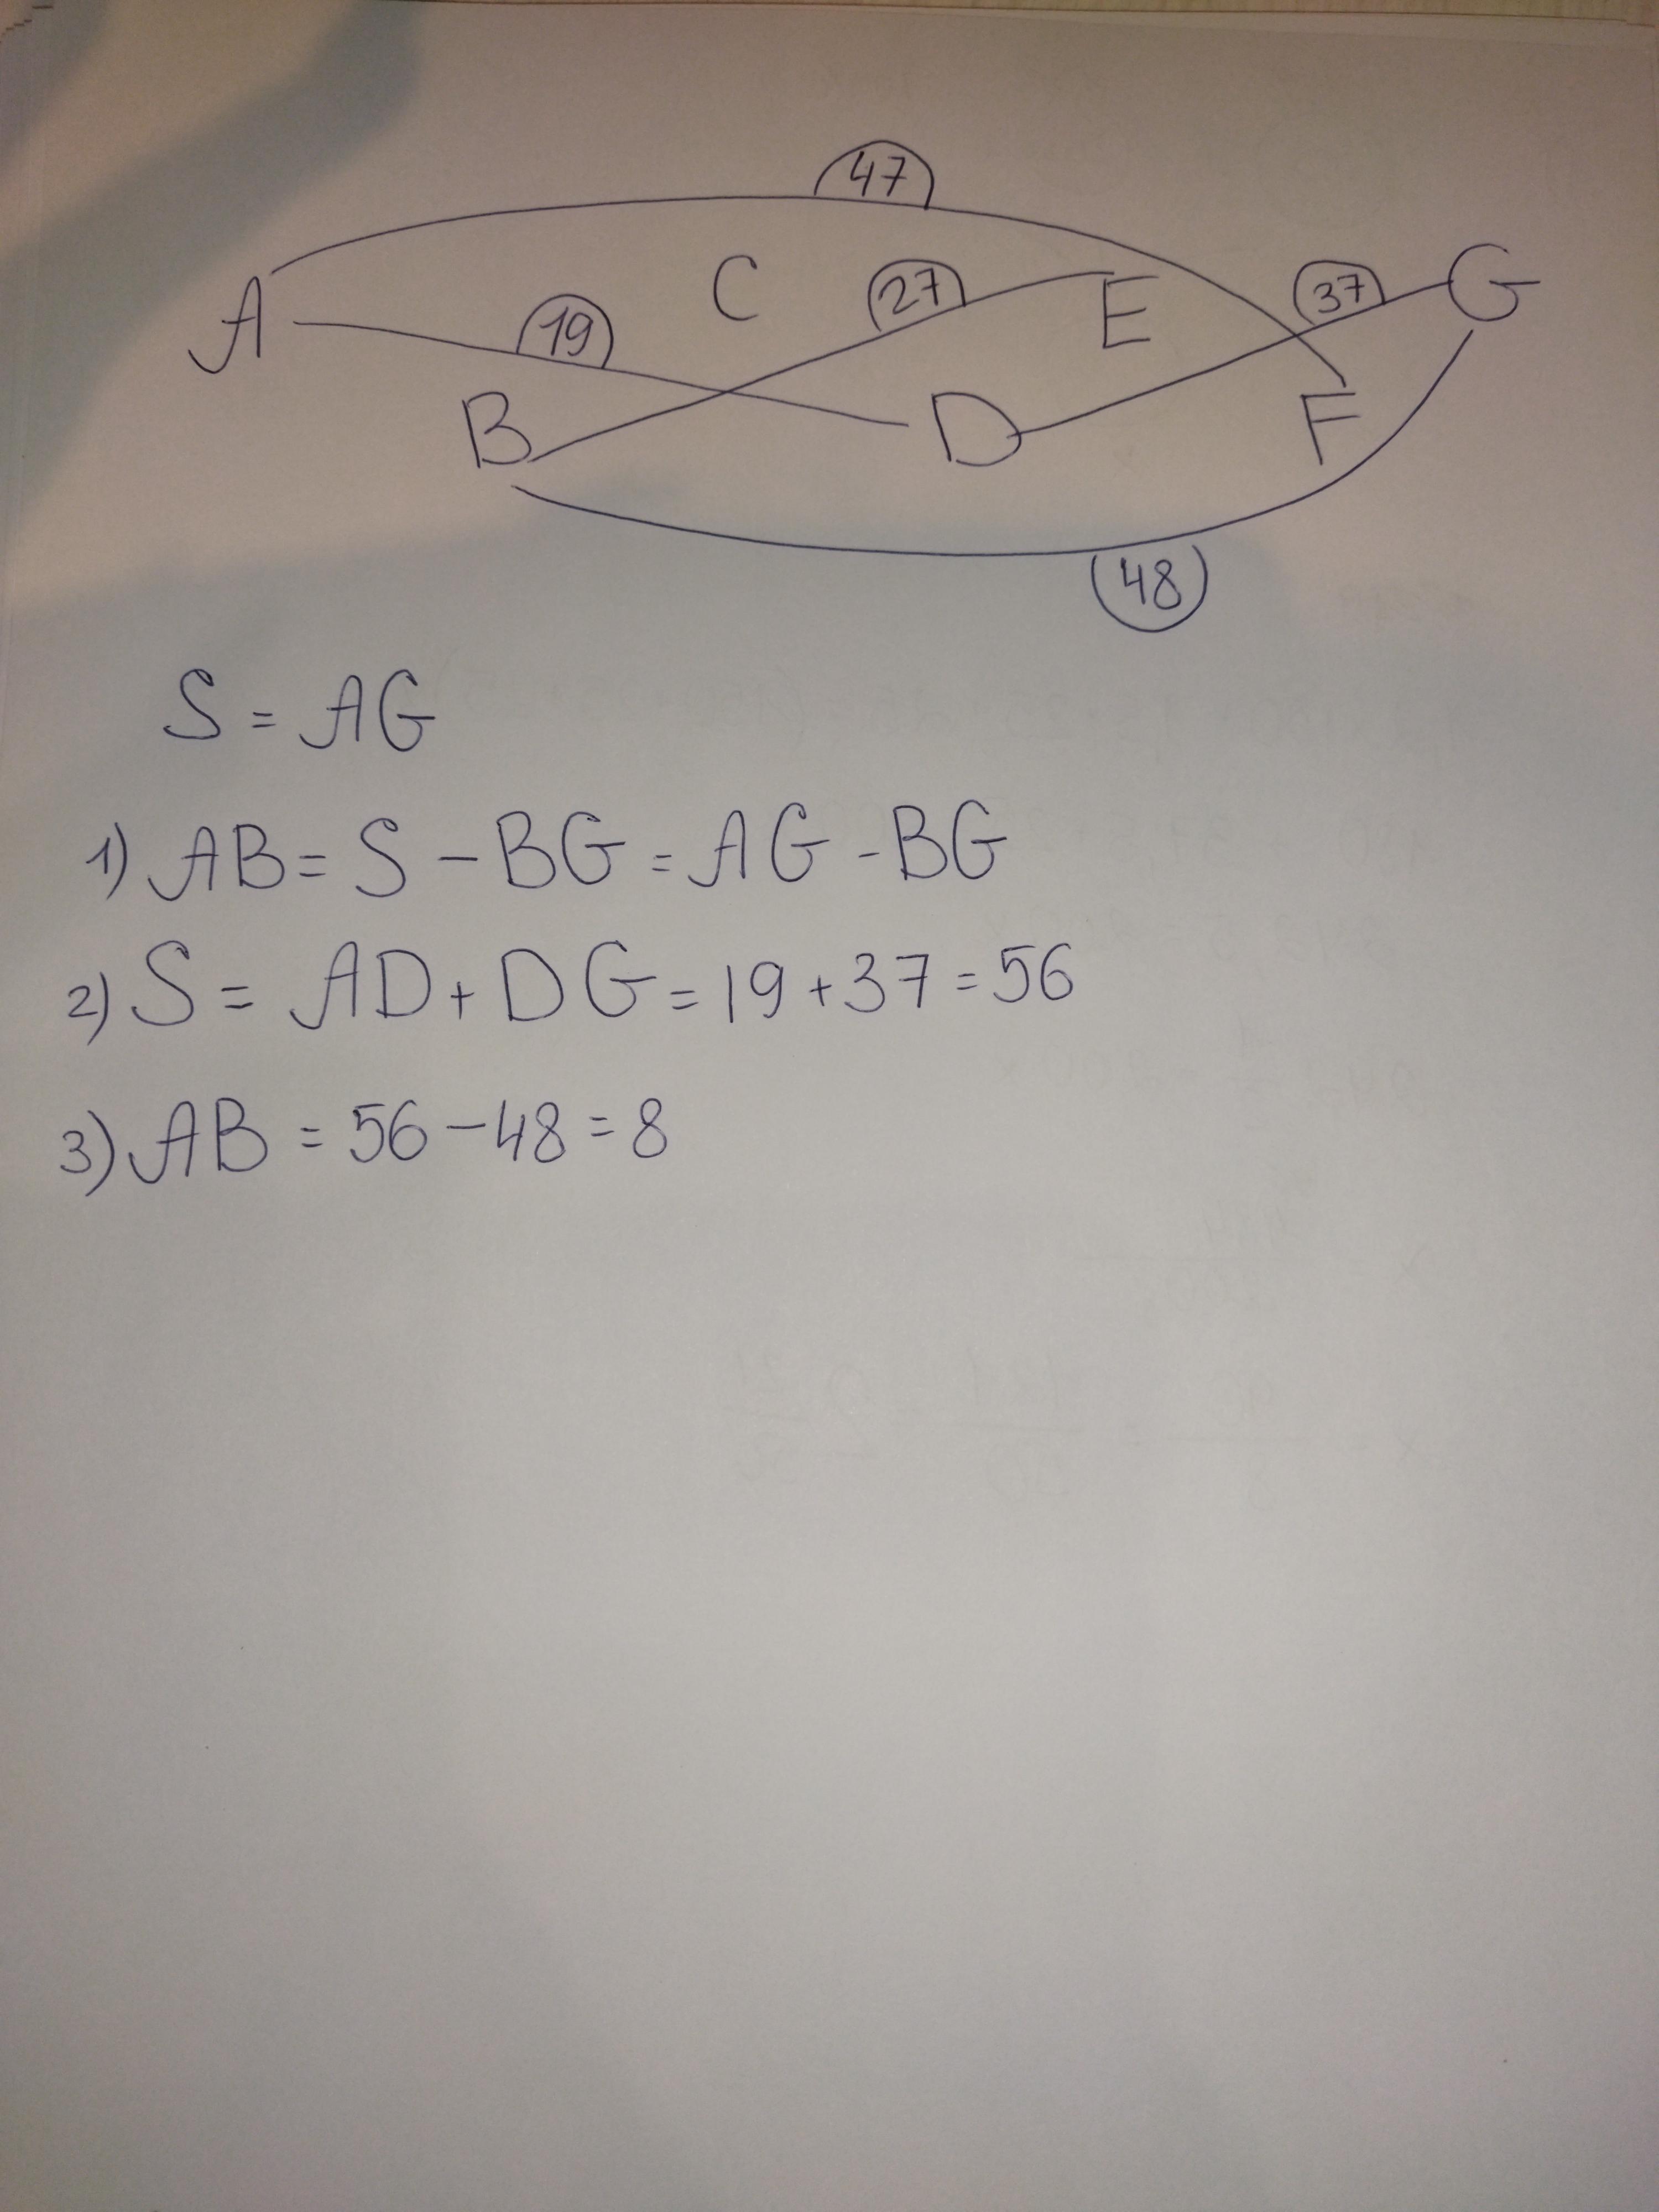 47
A 19 C 27 E 37 G
B D F
48
S = AG
1) AB = S - BG = AG - BG
2) S = AD + DG = 19 + 37 = 56
3) AB = 56 - 48 = 8